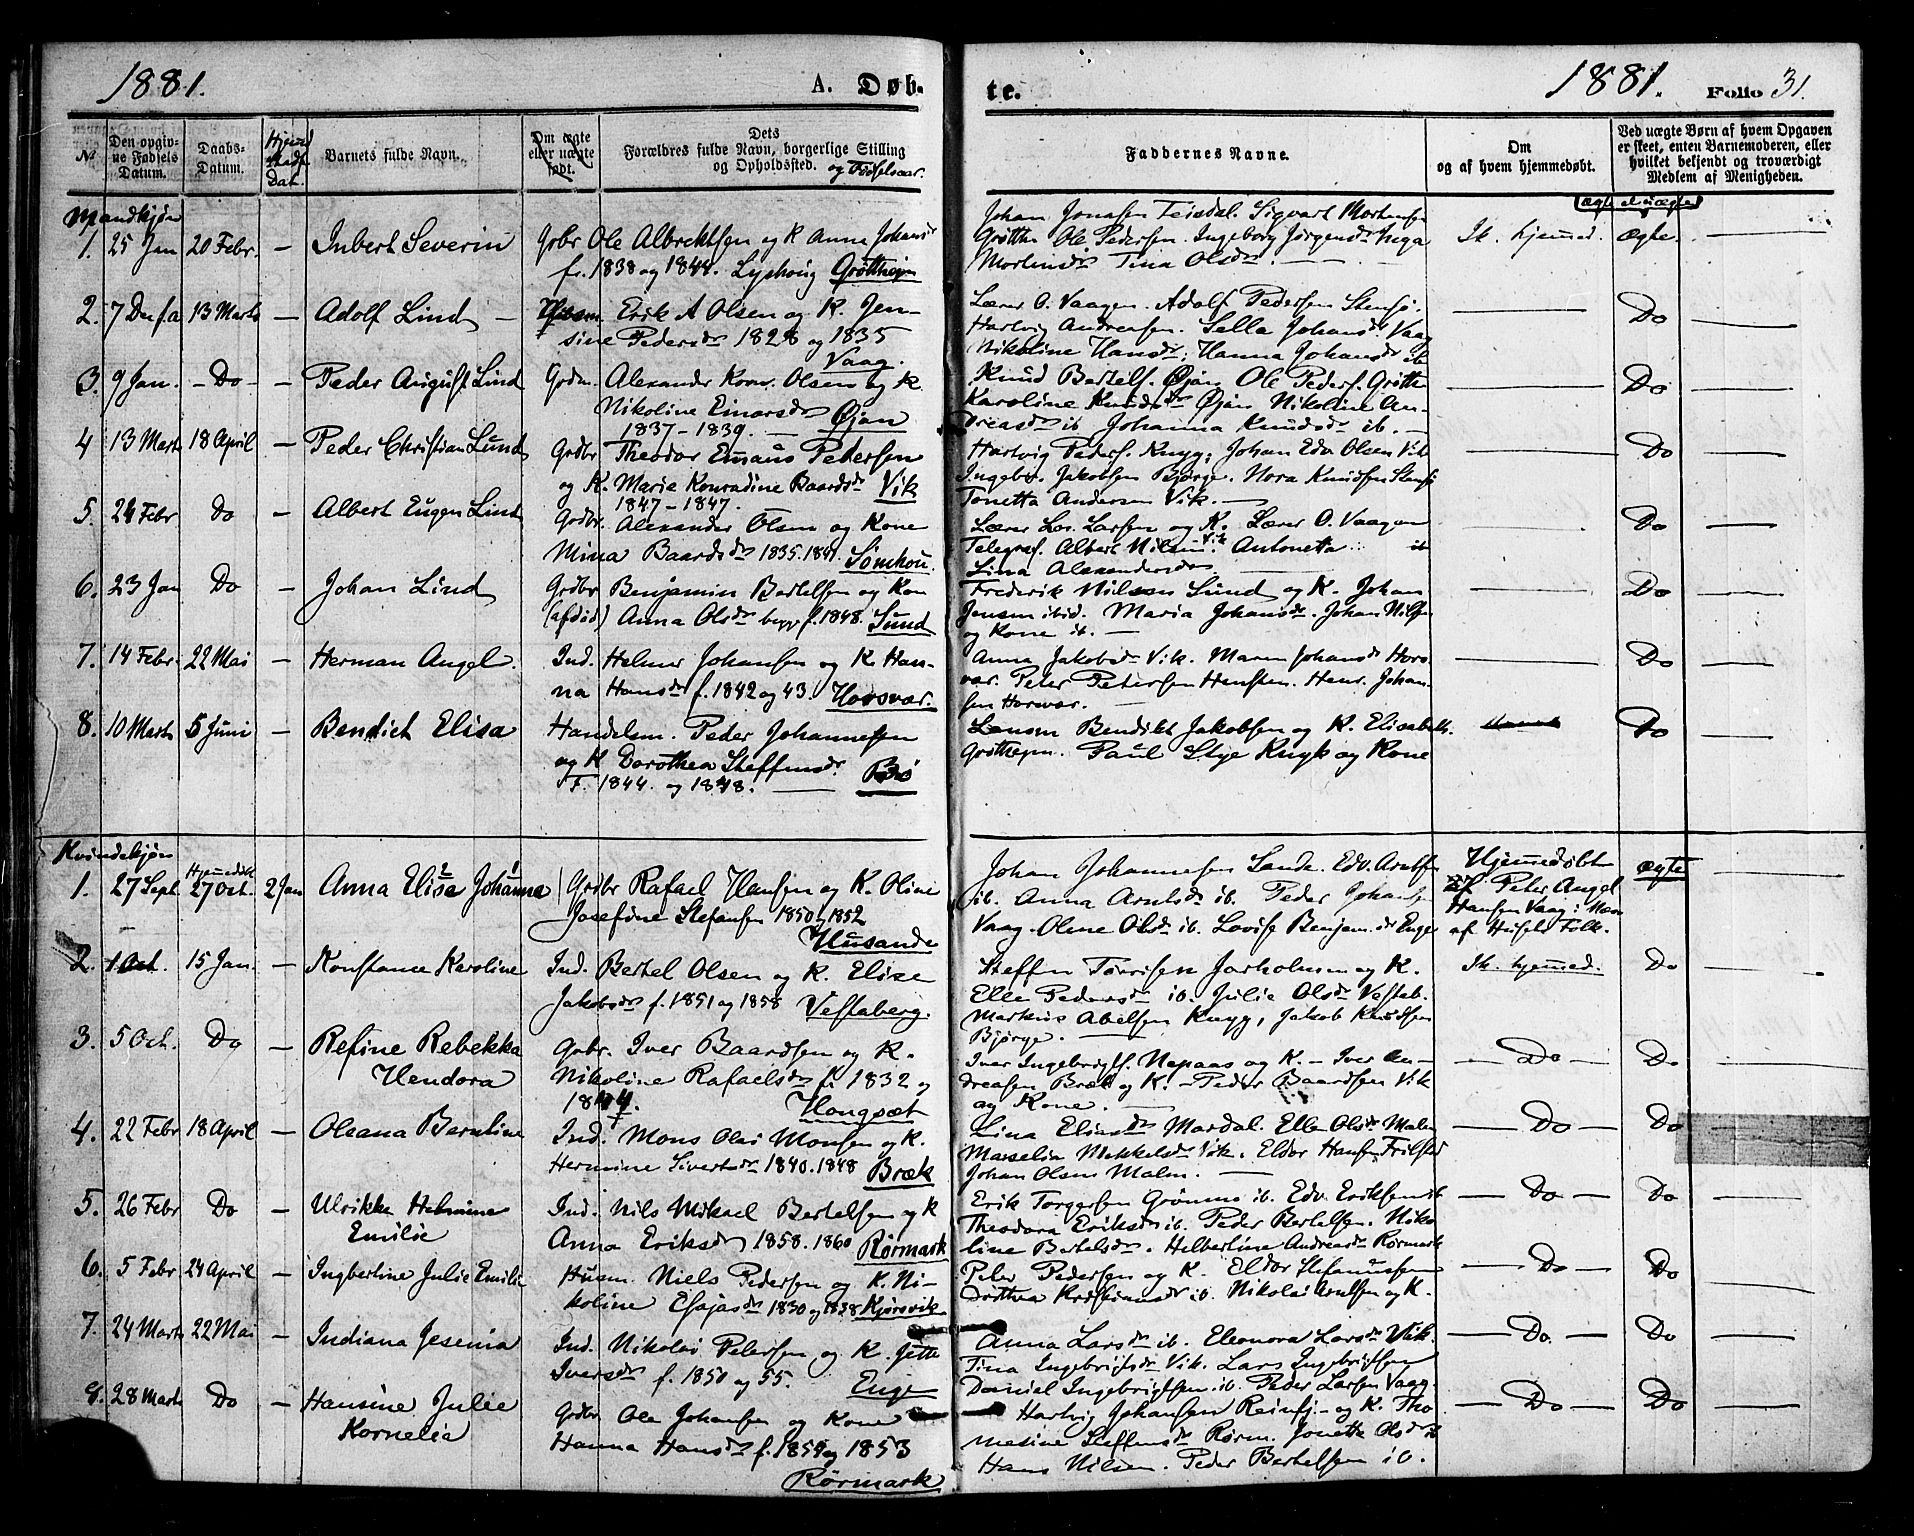 1881.
A. Døb-
te.
1881.
Folio 31.
№
Den opgiv-
ne Fødsels
Datum.
Daabs-
Datum.
Barnets fulde Navn.
Om ægte
eller uægte
født.
Dets
Forældres fulde Navn, borgerlige Stilling
og Opholdssted. og Fødselsaar.
Faddernes Navne.
Om
og af hvem hjemmedøbt.
Ved uægte Børn af hvem Opgaven
er skeet, enten Barnemoderen, eller
hvilket bekjendt og troværdigt
Medlem af Menigheden.
Mandkjøn
1. 25 Jan 20 Febr. — Inbert Severin Grbr Ole Albrektsen og K Anna Johansd
f. 1838 og 1844. Lyshoug Grøttheim
Johan Jonasen Teisdal. Sigvart Mortensen
Grøtthe Ole Pedersen. Ingeborg Jørgensdr Inga
Mortensdr Tina Olsdr. —
Ik. hjemmed. ægte. —
2. 7 Dec f.a 13 Marts — Adolf Lind — Husm. Erik A Olsen og K. Jen-
sine Pedersdr 1828 og 1835
Vaag.
Lærer O. Vaagen. Adolf Pedersen Stensø.
Hartvig Andreasen. Sella Johansdr Vaag
Nikoline Hansdr; Hanna Johansdr ib
— Do —
3. 9 Jan. — Do — — Peder August Lind Grdm. Alexander Konr. Olsen og K.
Nikoline Einarsdr Øjan
1837 – 1839. —
Knud Bertels. Øjan Ole Peders. Grøtthe
Karoline Knudsdr Øjan Nikoline An-
dreasdr ib Johanna Knudsdr ib. —
— Do —
4 13 Marts 18 April — Peder Christian Lund Grdbr Theodor Emaus Pedersen
og K. Marie Konradine Baardsdr Vik
1847 – 1847.
Hartvig Peders. Knyg; Johan Edv. Olsen Vik
Ingebr. Jakobsen Bjørge. Nora Knudsen Stensø
Tonetta Andersen Vik. —
— Do —
5. 24 Febr Do — Albert Eugen Lind Grdbr. Alexander Olsen og Kone
Mina Baardsdr 1835. 1841. Sømhou.
Lærer Lor. Larsen og K. Lærer O. Vaagen
Telegraf. Albert Nilsen Vik. Antonetta ib
Lina Alexandersdr —
— Do —
6. 23 Jan Do — Johan Lind Grdbr Benjamin Bertelsen og Kon
(afdød) Anna Olsdr begge f. 1848. Sund
Frederik Nilsen Sund og K. Johan
Jensen ibid. Maria Johansdr. Johan Nilsen
og Kone ib. —
— Do —
7. 14 Febr. 22 Mai — Herman Angel. Ind. Helmer Johansen og K. Han-
na Hansdr f. 1842 og 43. Horsvær.
Anna Jakobsdr Vik. Maren Johansdr Hors-
vær. Peter Petersen Hensten. Henr. Johan-
sen Horsvær. —
— Do —
8. 10 Marts 5 Juni — Bendict Elisa Handelsm. Peder Johannessen
og K Dorothea Steffensdr. Bø
F. 1844. og 1848. —
Lensm Bendikt Jakobsen og K. Elisabeth.
Grøtheim. Paul Stje Knyk og Kone
Do —
Kvindekjøn
1. 27 Sept. Hjemmedøbt 27 Oct. 2 Jan Anna Elise Johanna Grdbr Rafael Hansen og K. Oline
Josefine Stefansen 1850 og 1852
Husande
Johan Johannesen Sande. Edv. Arntsen
ib. Anna Arntsdr ib. Peder Johansen
Vaag. Olene Olsdr ib. Lovise Benjam.dr Enge
Hjemmedøbt
af Peter Angel
Hansen Vaag i Nærv
af Husets Folk.
ægte —
2. 1 Oct. 15 Jan. — Konstance Karoline Ind. Bertel Olsen og K. Elise
Jakobsdr f. 1851 og 1858 Vestaberg.
Steffen Torrisen Jarholmen og K.
Elle Pedersdr ib. Julie Olsdr Vestab.
Markus Abelsen Knyg, Jakob Knudsen
Bjørge. —
Ik. hjemmed. Do —
3. 5 Oct. Do — Refine Rebekka
Hendora
Grbr. Iver Baardsen og K.
Nikoline Rafaelsdr f. 1832 og
1844. Hongsæt
Iver Ingebrigts. Nepaas og K. – Iver An-
dreasen Bræk og K. – Peder Baardsen Vik
og Kone. —
— Do — Do —
4. 22 Febr 18 April — Oleana Berntine Ind. Mons Olai Monsen og K.
Hermine Sivertsdr 1840. 1848 Bræk
Lina Eliasdr Mardal. Ella Olsdr Malm
Marselia Mikkelsdr Vik. Eldor Hansen Frilstad
Johan Olsen Malm. —
— Do — Do
5. 26 Febr Do — Ulrikke Helmine
Emilie
Ind. Nils Mikael Bertelsen og K
Anna Eriksdr 1858. 1860 Rørmark
Erik Torgersen Grønmo ib. Edv. Eriksen ib
Theodora Eriksdr ib. Peder Bertelsen. Niko-
line Bertelsdr. Helbertine Andreasdr Rørmark
— Do — Do —
6. 5 Febr 24 April — Ingbertine Julie Emilie Husm. Niels Pedersen og K. Ni-
koline Esajasdr 1830 og 1838 Kjørsvik
Peter Pedersen og K. Eldor Stefanussen
Dorthea Kristiansdr ib. Nikolai Arntsen og K.
— Do — Do —
7. 24 Marts 22 Mai — Indiana Jesenia Ind. Nikolai Petersen og K. Jette
Iversdr f. 1850 og 55. Enge
Anna Larsdr ib. Eleonora Larsdr Vik.
Tina Ingebrigtsdr Vik. Lars Ingebrigtsen
Daniel Ingebrigtsen ib. Peder Larsen Vaag.
— Do. — Do —
8. 28 Marts Do — Hansine Julie
Kornelia
Grdbr. Ole Johansen og Kone
Hanna Hansdr f. 1854 og 1853
Rørmark
Hartvig Johansen Reinsj– og K. Tho-
mesine Steffensdr Rørm. Jonetta Olsdr ib
Hans Nilsen. Peder Bertelsen ib.
— Do — Do —